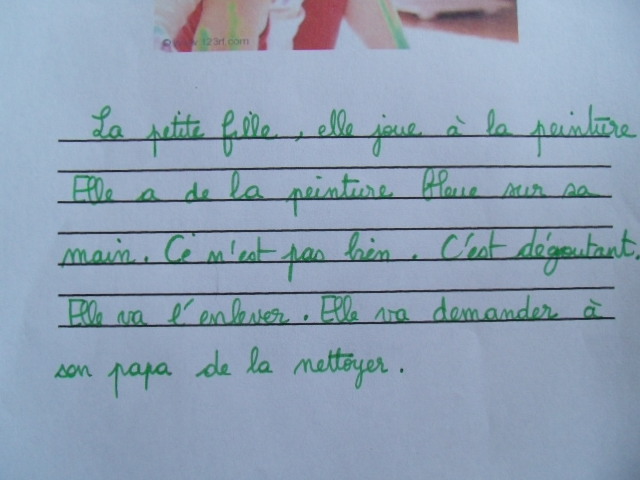 © www.123rf.com
La petite fille, elle joue à la peinture
Elle a de la peinture bleue sur sa
main. Ce n'est pas bien. C'est dégoutant.
Elle va l'enlever. Elle va demander à
son papa de la nettoyer.